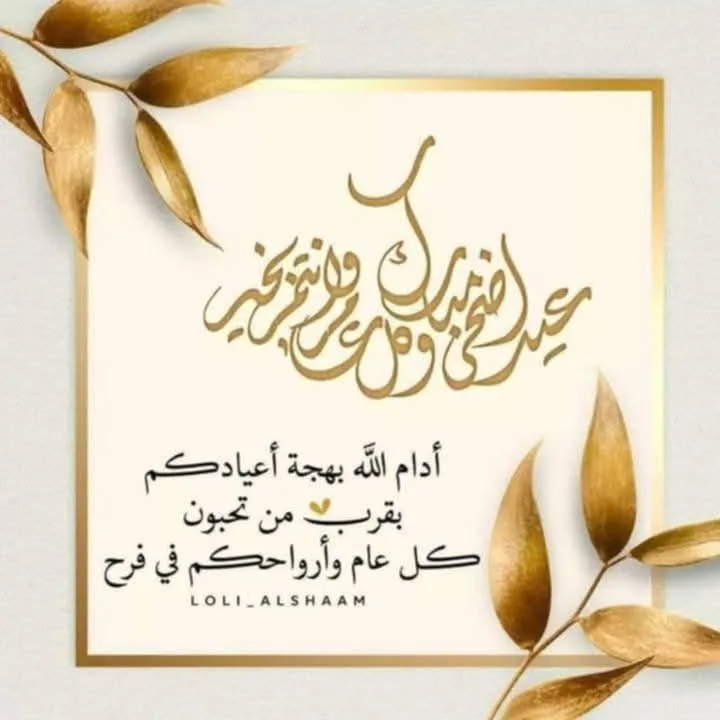 عيد اضحى مبارك
وكل عام وانتم بخير
أدام الله بهجة أعيادكم
بقرب من تحبون
كل عام وأرواحكم في فرح
LOLI_ALSHAAM